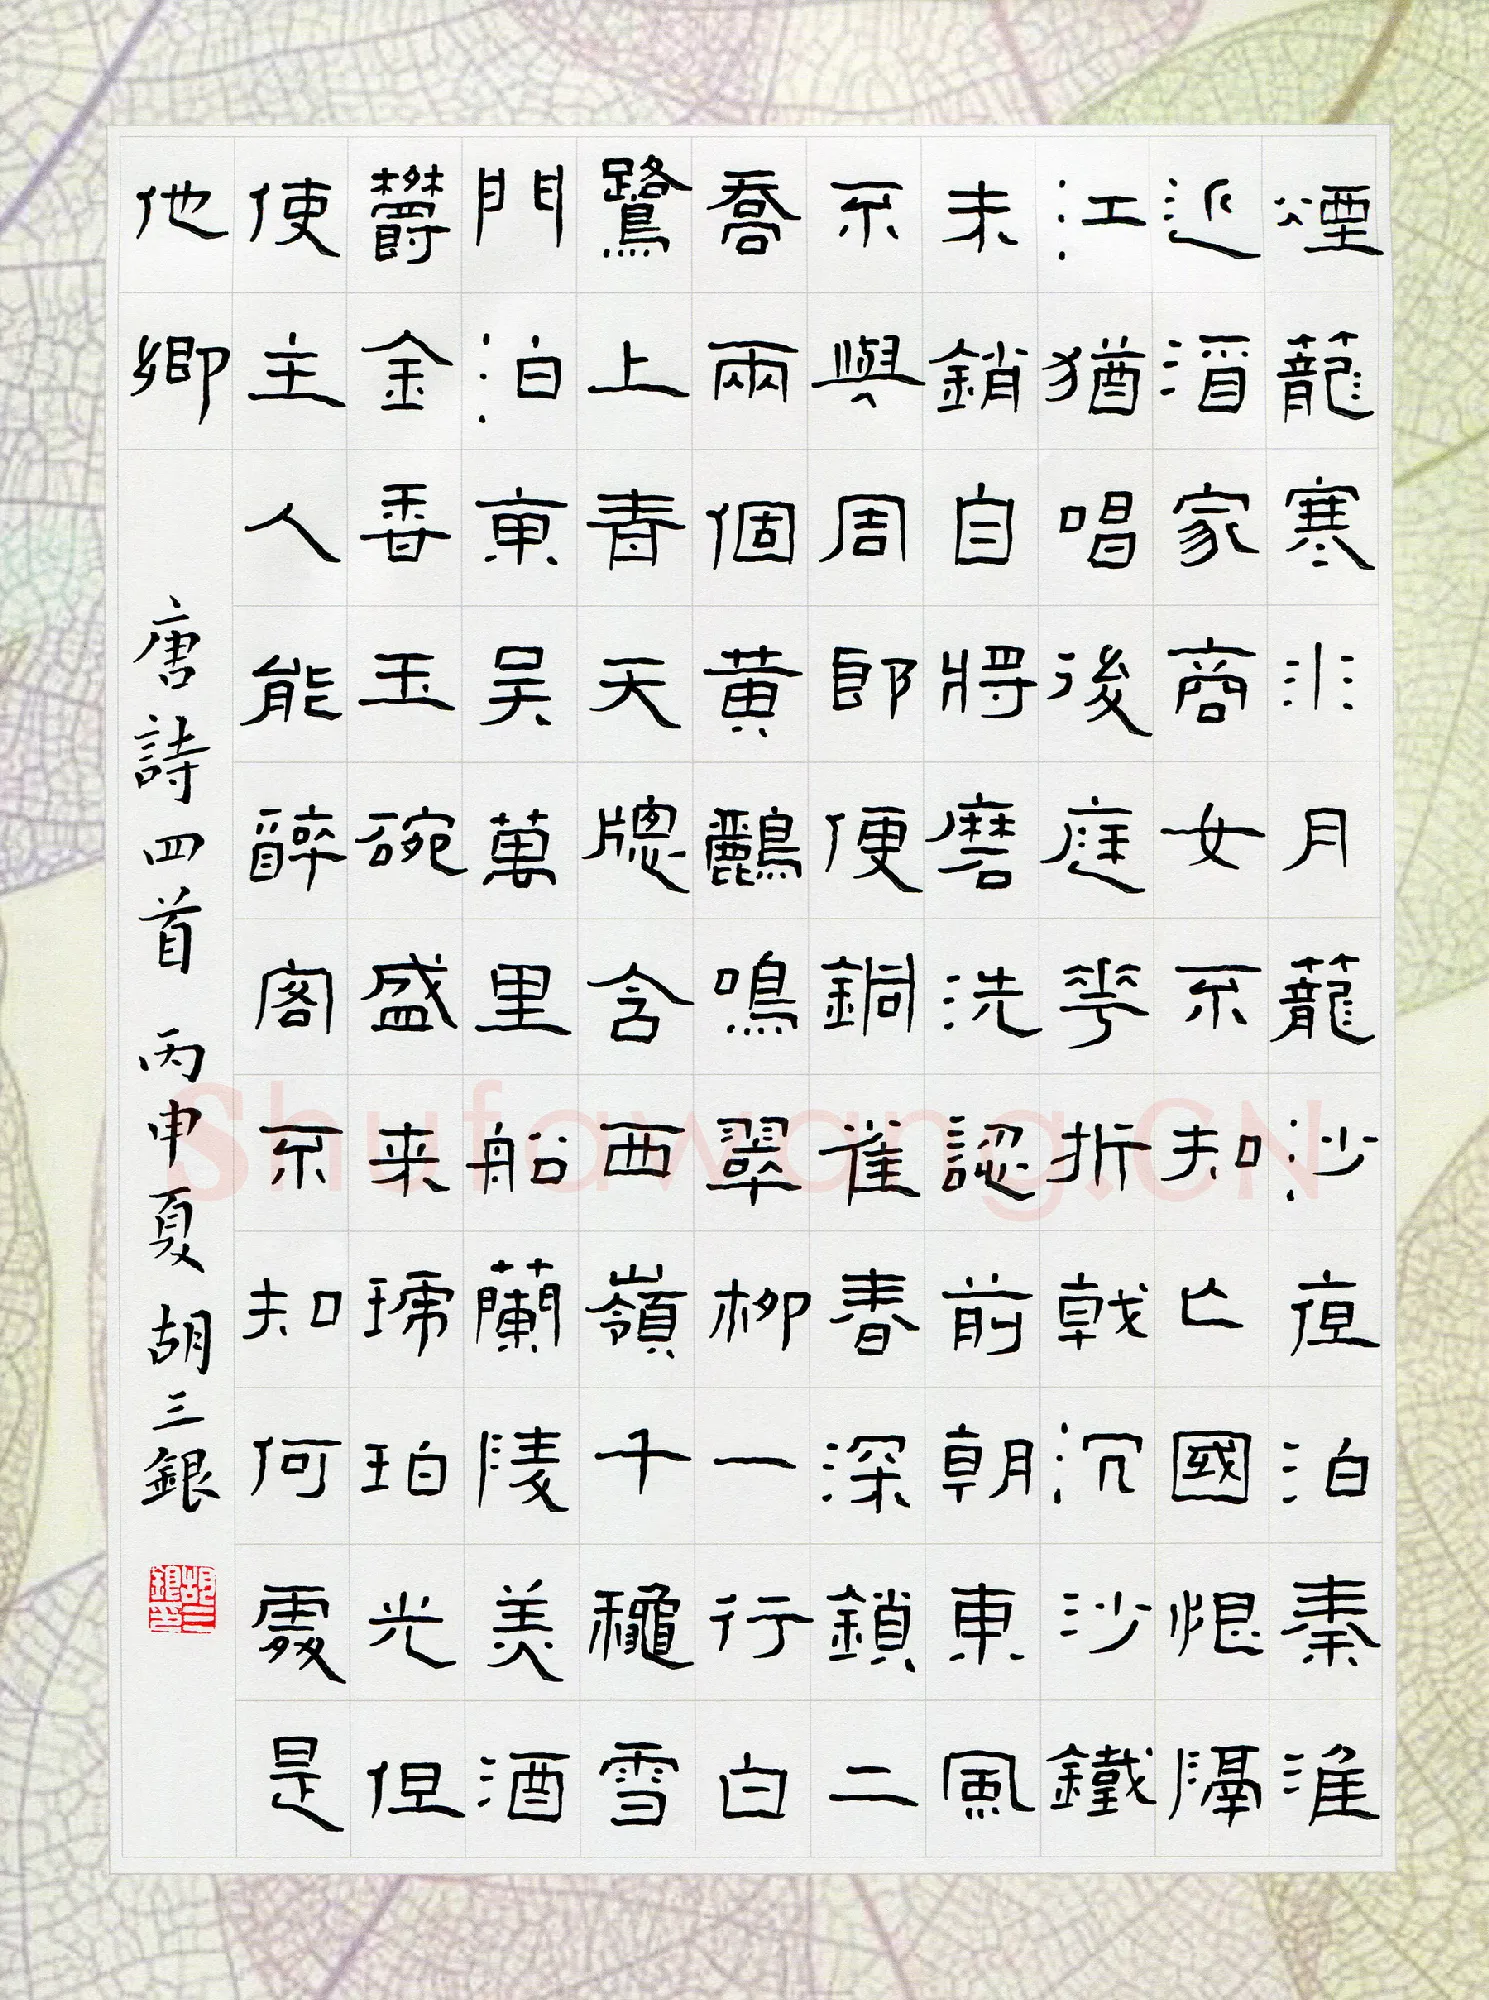 煙籠寒水月籠沙夜泊秦淮
近酒家商女不知亡國恨隔
江猶唱後庭花折戟沉沙鐵
未銷自將磨洗認前朝東風
不與周郎便銅雀春深鎖二
喬兩個黃鸝鳴翠柳一行白
鷺上青天牕含西嶺千穐雪
門泊東吳萬里船蘭陵美酒
欝金香玉碗盛来琥珀光但
使主人能醉客不知何處是
他鄉
唐詩四首 丙申夏 胡三銀
胡三銀印
Shufawang.CN